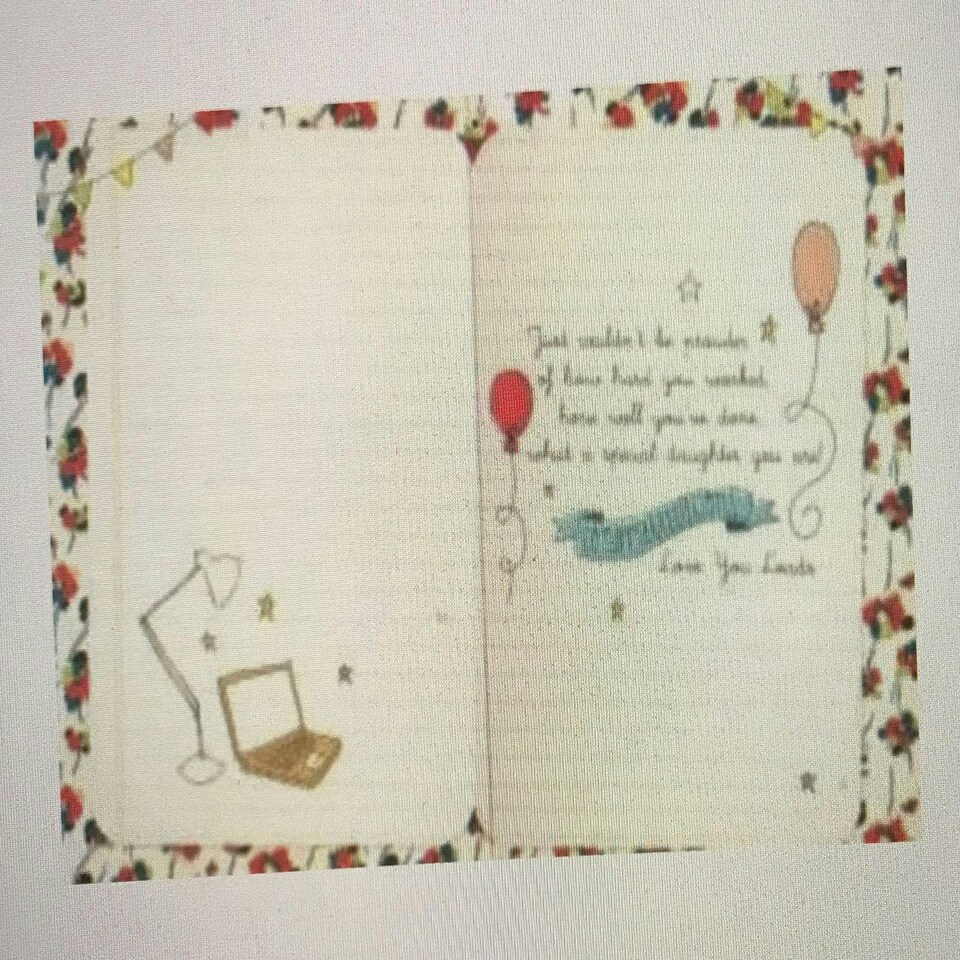 Just couldn't be prouder
of how hard you worked,
how well you've done
what a special daughter you are!
Love You Lots